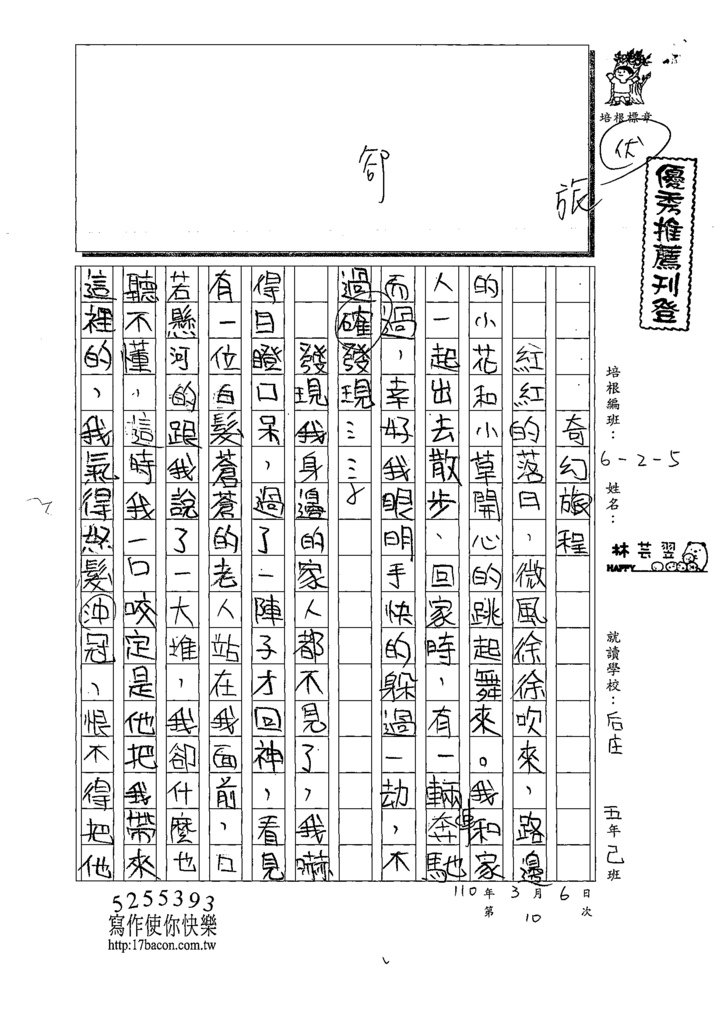 培根標章
優秀推薦刊登
伏
旅
卻
培根編班：6-2-5
姓名：林芸翌
HAPPY
就讀學校：后庄
五年己班
110年3月6日
第10次
奇幻旅程
紅紅的落日，微風徐徐吹來，路邊
的小花和小草開心的跳起舞來。我和家
人一起出去散步，回家時，有一輛奔馳
而過，幸好我眼明手快的躲過一劫，不
過確發現……
發現我身邊的家人都不見了，我嚇
得目瞪口呆，過了一陣子才回神，看見
有一位白髮蒼蒼的老人站在我面前，口
若懸河的跟我說了一大堆，我卻什麼也
聽不懂，這時我一口咬定是他把我帶來
這裡的，我氣得怒髮沖冠，恨不得把他
5255393
寫作使你快樂
http:17bacon.com.tw